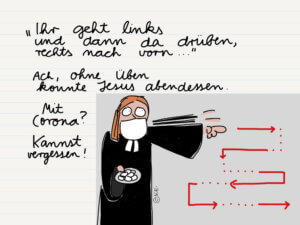 „Ihr geht links
und dann da drüben,
rechts nach vorn..."
Ach, ohne Üben
konnte Jesus abendessen.
Mit
Corona?
Kannst
vergessen!